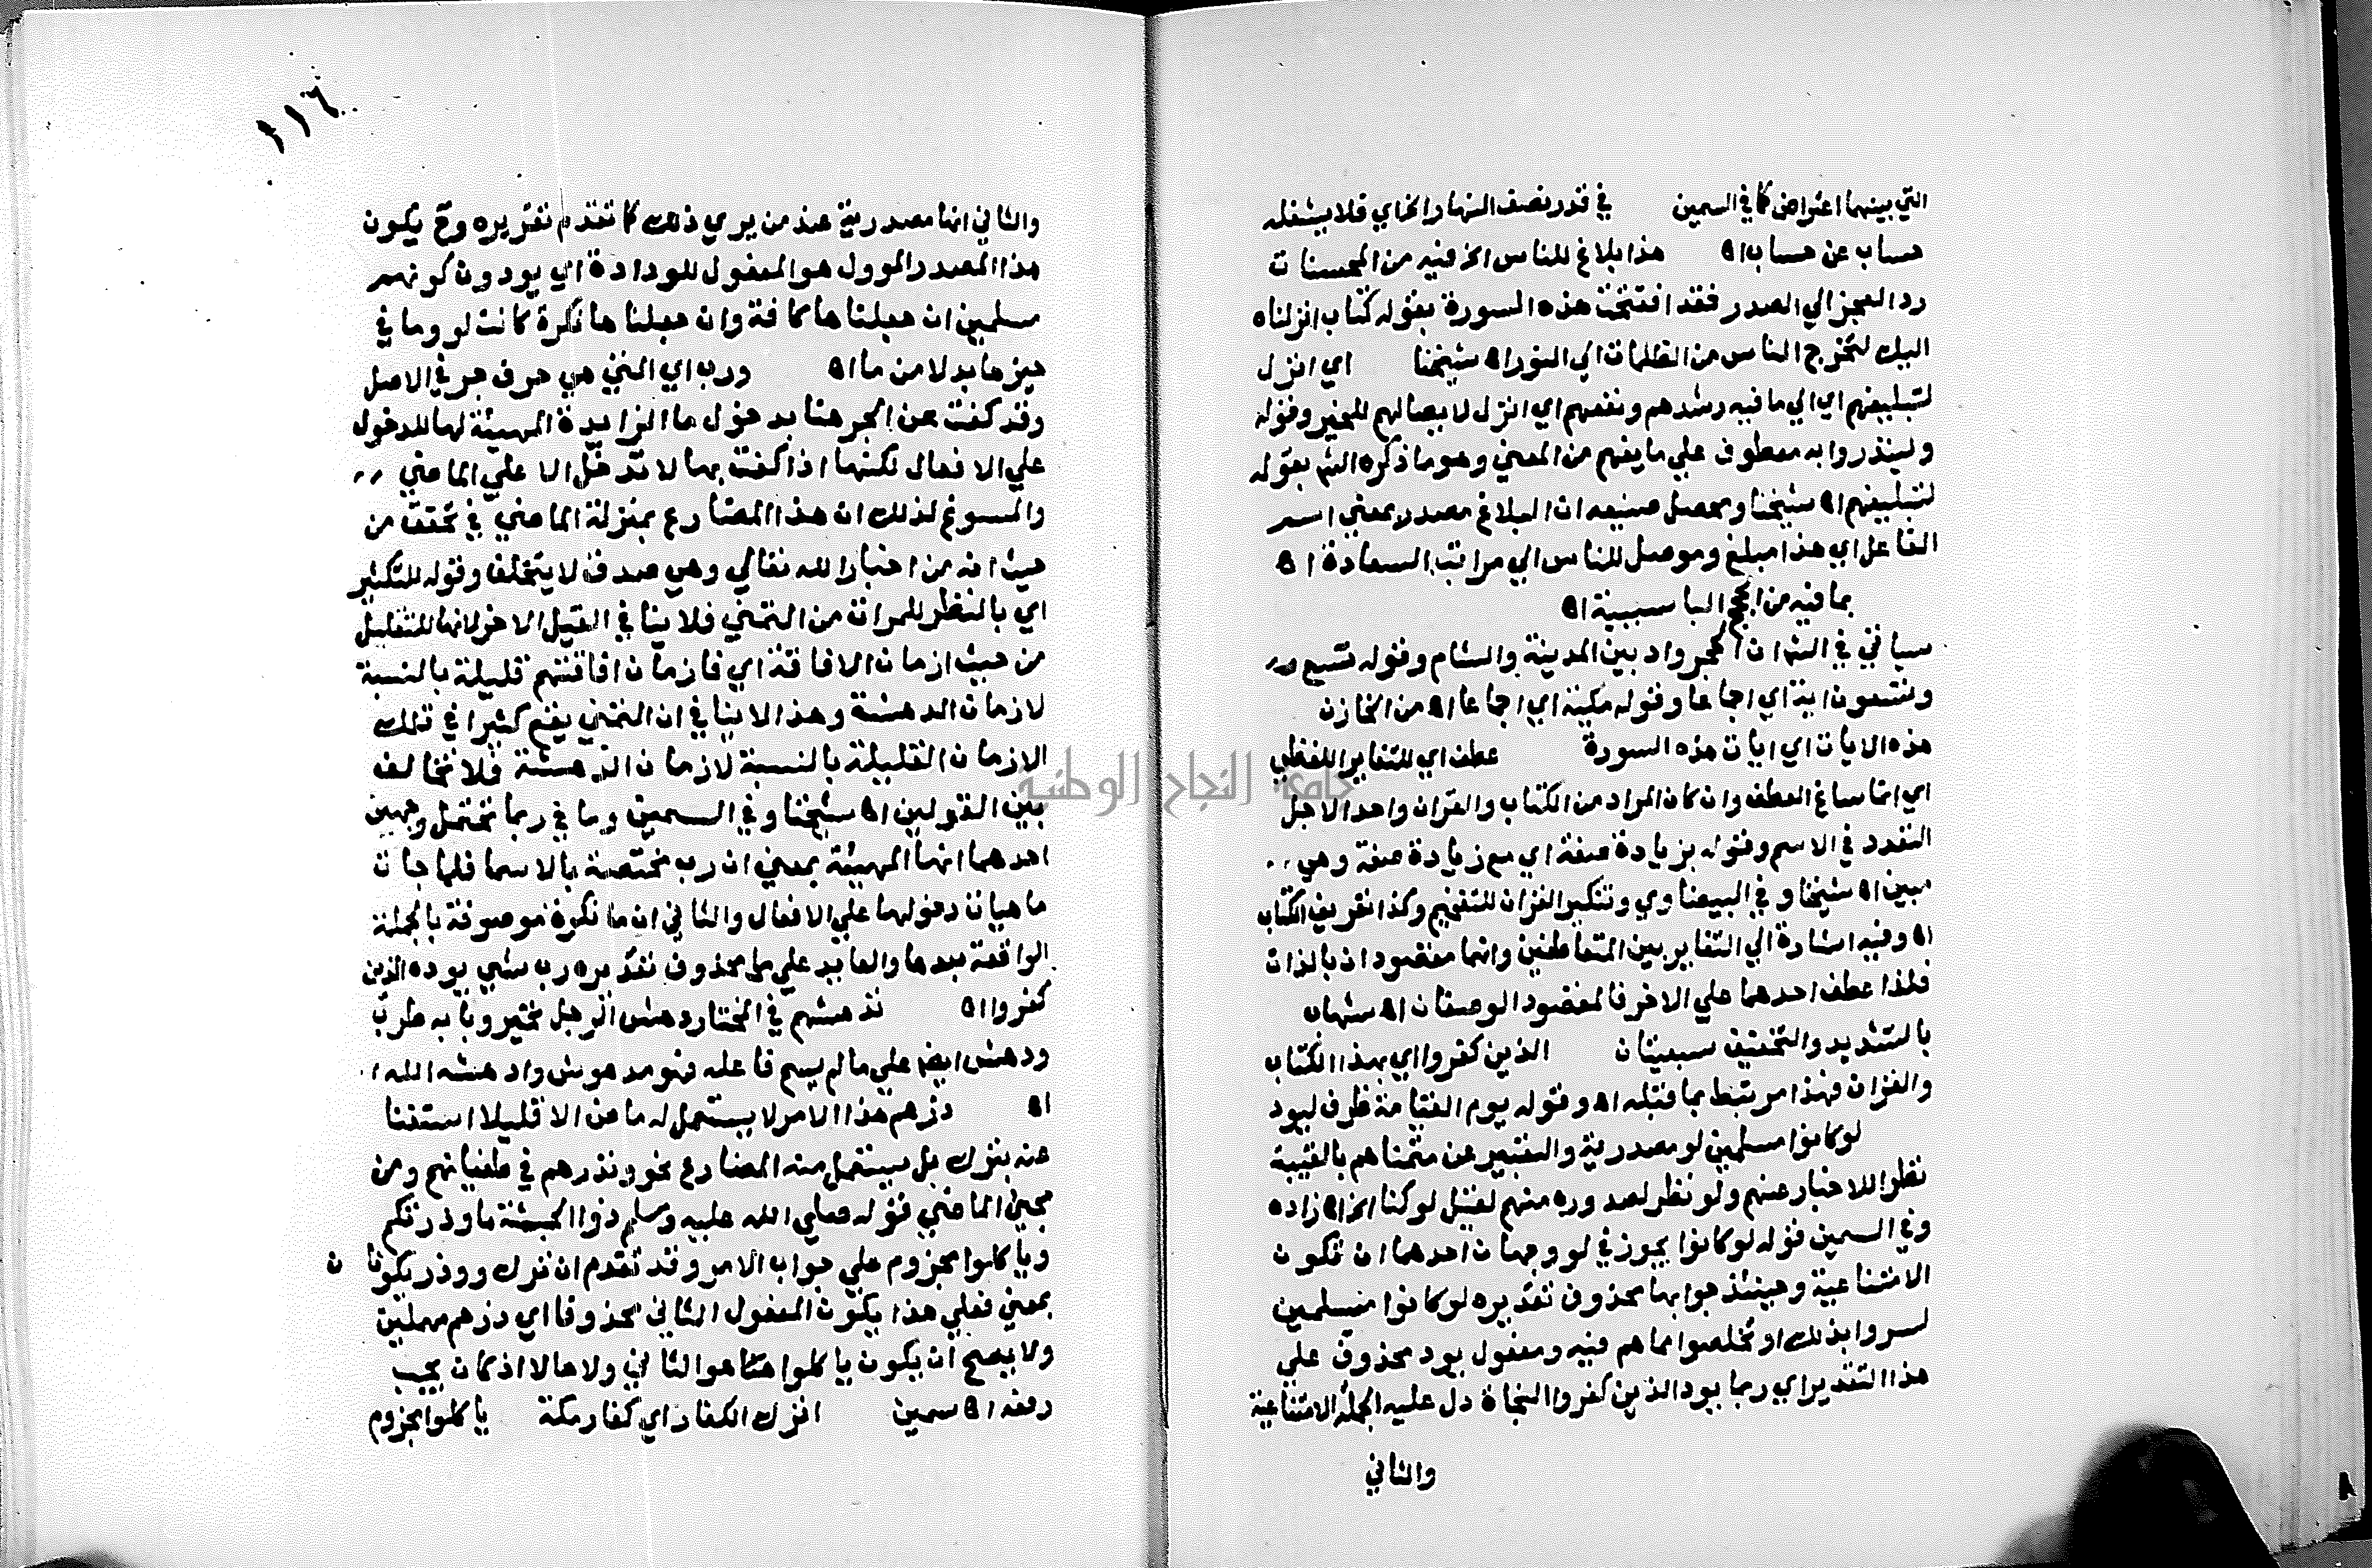 التي بينهما اعتراض كما في السمين في قدر نصف النهار الخ اي فلا يشغله
حساب عن حساب اه هذا بلاغ للناس الخ فيه من المحسنات
رد العجز الي الصدر فقد افتتحت هذه السورة بقوله كتاب انزلناه
اليك لتخرج الناس من الظلمات الي النور اه شيخنا اي انزل
لتبليغهم اي الي ما فيه رشدهم ونفعهم اي انزل لايصالهم للخير وقوله
ولينذروا به معطوف علي ما يفهم من المعني وهو ما ذكره الشم بقوله
لتبليغهم اه شيخنا ومحصل صنيعه ان البلاغ مصدر بمعني اسم
الفاعل اي هذا مبلغ وموصل للناس الي مراتب السعادة اه
بما فيه من الحجج البا سببية اه
سياتي في الشم ان الحجر واد بين المدينة والشام وقوله تسع
وتسعون اية اي اجماعا وقوله مكية اي اجماعا اه من الخازن
هذه الايات اي ايات هذه السورة عطف اي للتغاير اللفظي
اي انما ساغ العطف وان كان المراد من الكتاب والقران واحد الاجل
التعدد في الاسم وقوله بزيادة صفة اي مع زيادة صفة وهي
مبين اه شيخنا وفي البيضاوي وتنكير القران للتفخيم وكذا تعريف الكتاب
اه وفيه اشارة الي التغاير بين المتعاطفين وانهما مقصودان بالذات
فلذا عطف احدهما علي الاخر فالمقصود الوصفان اه شهاب
بالتشديد والتخفيف سبعيتان الذين كفروا اي بهذا الكتاب
والقران فهذا مرتبط بما قبله اه وقوله يوم القيامة ظرف ليود
لو كانوا مسلمين لو مصدرية والتعبير عن متمناهم بالغيبة
نظرا للاخبار عنهم ولو نظر لصدوره منهم لقيل لو كنا الخ اه زاده
وفي السمين قوله لو كانوا يجوز في لو وجهان احدهما ان تكون
الامتناعية وحينئذ جوابها محذوف تقديره لو كانوا مسلمين
لسروا بذلك او تخلصوا مما هم فيه ومفعول يود محذوف علي
هذا التقدير اي ربما يود الذين كفروا النجاة دل عليه الجملة الامتناعية
والثاني
١١٦
والثاني انها مصدرية عند من يري ذلك كما تقدم تقريره وح يكون
هذا المصدر الموول هو المفعول للودادة اي يودون كونهم
مسلمين ان جعلنا ما كافة وان جعلنا ها نكرة كانت لو وما في
حيزها بدلا من ما اه ورب اي التي هي حرف جر في الاصل
وقد كفت عن الجر هنا بدخول ما الزايدة المهيئة لها للدخول
علي الافعال لكنها اذا كفت بها لا تدخل الا علي الماضي
والمسوغ لذلك ان هذا المضارع بمنزلة الماضي في تحققه من
حيث انه من اخبار الله تعالي وهي صدق لا يتخلف وقوله للتكثير
اي بالنظر للمرات من التمني فلا ينافي القيل الاخر لانها للتقليل
من حيث ازمان الافاقة اي فازمان افاقتهم قليلة بالنسبة
لازمان الدهشة وهذا لا ينافي ان التمني يقع كثيرا في تلك
الازمان القليلة بالنسبة لازمان الدهشة فلا تخالف
بين القولين اه شيخنا وفي السمين وما في ربما تحتمل وجهين
احدهما انها المهيئة بمعني ان رب مختصة بالاسما فلما جات
ما هيات دخولها علي الافعال والثاني ان ما نكرة موصوفة بالجملة
الواقعة بعدها والعايد علي ما محذوف تقديره رب شي يوده الذين
كفروا اه تدهشهم في المختار دهش الرجل تحير وبابه طرب
ودهش ايضا علي ما لم يسم فاعله فهو مدهوش وادهشه الله
اه ذرهم هذا الامر لا يستعمل له ماض الا قليلا استغنا
عنه بترك بل يستعمل منه المضارع نحو ونذرهم في طغيانهم ومن
مجيئ الماضي قوله صلي الله عليه وسلم ذروا الحبشة ما وذرتكم
وياكلوا مجزوم علي جواب الامر وقد تقدم ان ترك ووذر يكونان
بمعني فعلي هذا يكون المفعول الثاني محذوفا اي ذرهم مهملين
ولا يصح ان يكون ياكلوا هنا هو الثاني ولا حالا اذ كان يجب
رفعه اه سمين اترك الكفار اي كفار مكة ياكلوا مجزوم